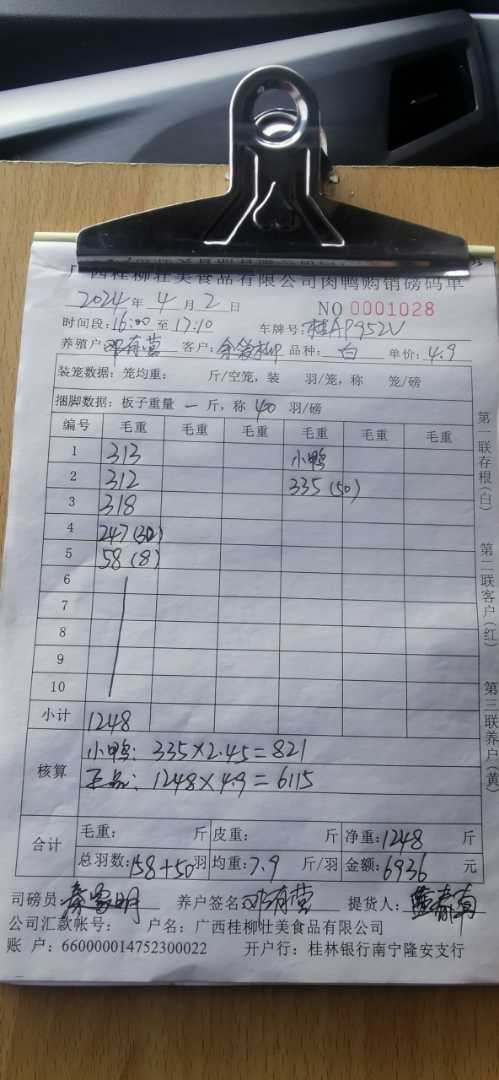 广西桂柳壮美食品有限公司肉鸭购销磅码单
2024年 4月 2日 NO 0001028
时间段:16:00至17:10 车牌号:桂AP952V
养殖户:邓有营 客户: 品种:白 单价:4.9
装笼数据:笼均重: 斤/空笼,装 羽/笼,称 笼/磅
捆脚数据:板子重量 一 斤,称 40 羽/磅
编号 毛重 毛重 毛重 毛重 毛重 毛重
1 313 小鸭
2 312 335(50)
3 318
4 247(32)
5 58(8)
6
7
8
9
10
小计 1248
核算 小鸭:335×2.45=821
正品:1248×4.9=6115
合计 毛重: 斤 皮重: 斤 净重:1248 斤
总羽数:158+50羽 均重:7.9 斤/羽 金额:6936 元
司磅员: 养户签名:邓有营 提货人:
公司汇款帐号: 户名:广西桂柳壮美食品有限公司
账 户:660000014752300022 开户行:桂林银行南宁隆安支行
第一联存根(白)
第二联客户(红)
第三联养户(黄)